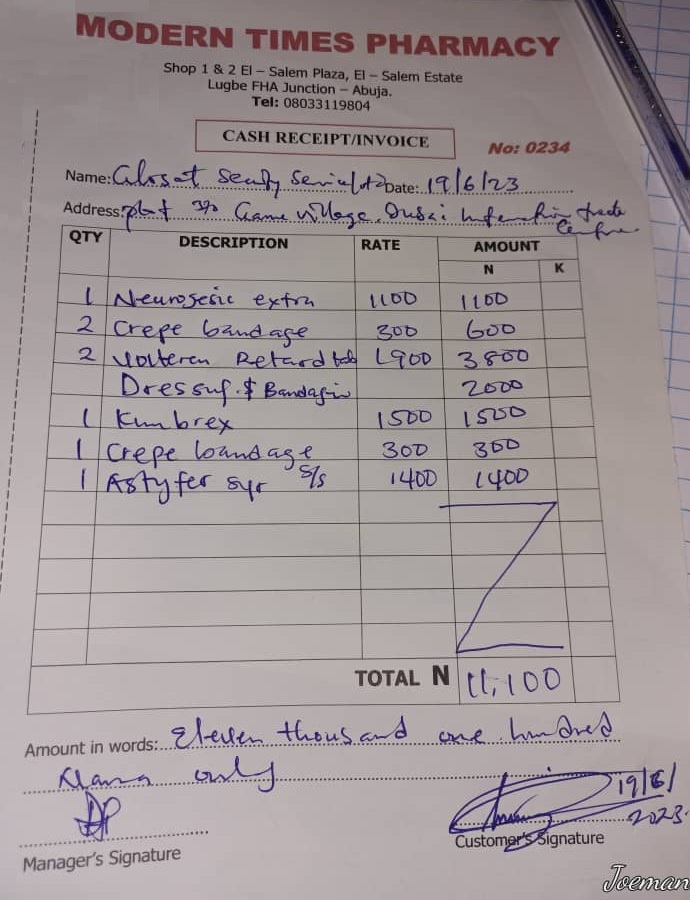 MODERN TIMES PHARMACY
Shop 1 & 2 El – Salem Plaza, El – Salem Estate
Lugbe FHA Junction – Abuja.
Tel: 08033119804
CASH RECEIPT/INVOICE No: 0234
Name: Date: 19/6/23
Address: plot Game village, Dubai trade
Centre
QTY DESCRIPTION RATE AMOUNT
N K
1 Neurogesic extra 1100 1100
2 Crepe bandage 300 600
2 Volteren Retard tab 1900 3800
& 2000
1 1500 1500
1 Crepe bandage 300 300
1 Astyfer syr S/S 1400 1400
TOTAL N 11,100
Amount in words: Eleven thousand one hundred
Naira only
19/6/
2023
Manager's Signature Customer's Signature
Joeman